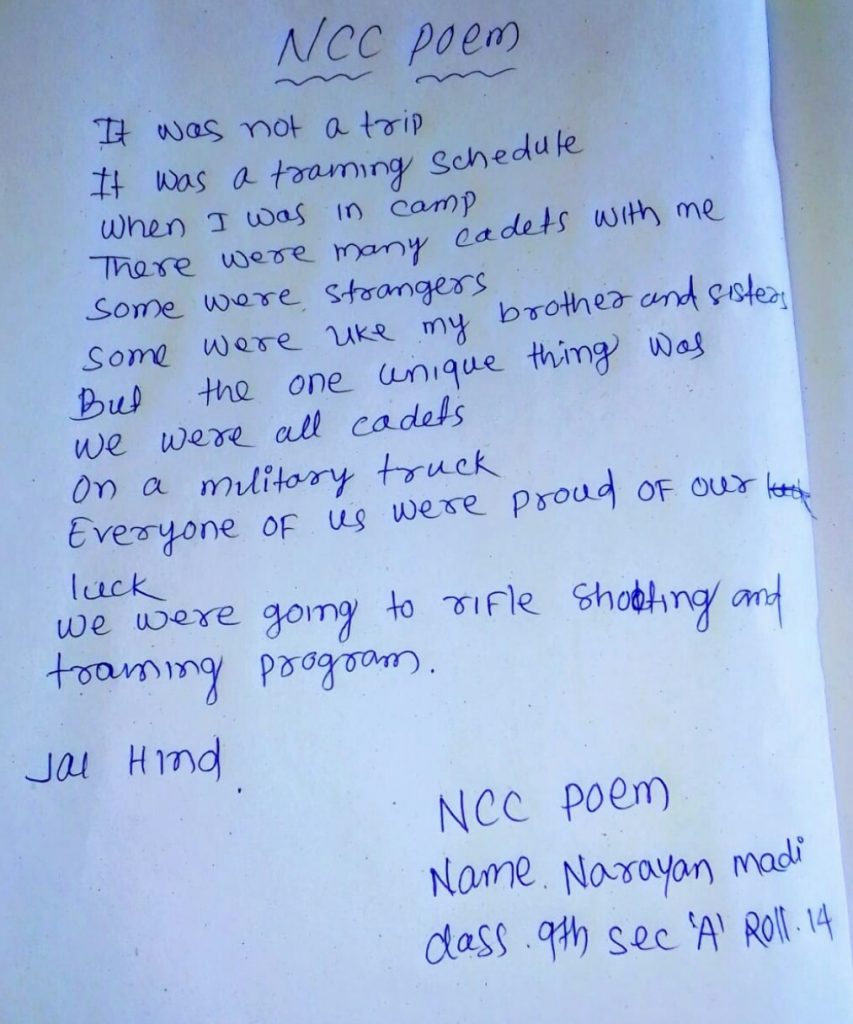 NCC Poem
It was not a trip
It was a training schedule
when I was in camp
There were many cadets with me
some were strangers
some were like my brother and sisters
But the one unique thing was
we were all cadets
on a military truck
Everyone of us were proud of our
luck
we were going to rifle shooting and
training program.
Jai Hind.
NCC Poem
Name. Narayan madi
class. 9th sec 'A' Roll. 14